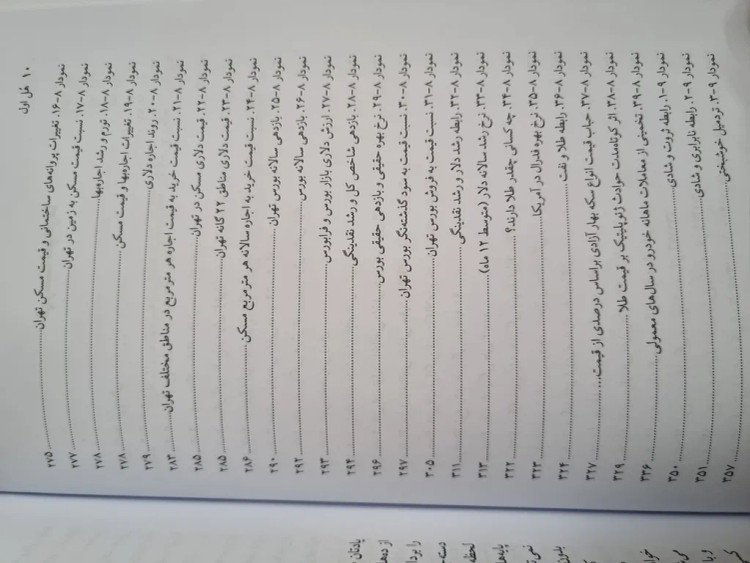 ۱۰ غل اول
نمودار ۸-۱۶. تغییرات پروانه‌های ساختمانی و قیمت مسکن تهران ۲۷۵
نمودار ۸-۱۷. نسبت قیمت مسکن به زمین در تهران ۲۷۷
نمودار ۸-۱۸. تورم و رشد اجاره‌بها ۲۷۸
نمودار ۸-۱۹. تغییرات اجاره‌بها و قیمت مسکن ۲۷۸
نمودار ۸-۲۰. روند اجاره دلاری ۲۷۹
نمودار ۸-۲۱. نسبت قیمت خرید به قیمت اجاره هر مترمربع در مناطق مختلف تهران ۲۸۳
نمودار ۸-۲۲. قیمت دلاری مسکن در تهران ۲۸۵
نمودار ۸-۲۳. قیمت دلاری مناطق ۲۲ گانه تهران ۲۸۵
نمودار ۸-۲۴. نسبت قیمت خرید به اجاره سالانه هر مترمربع مسکن ۲۸۶
نمودار ۸-۲۵. بازدهی سالانه بورس تهران ۲۹۰
نمودار ۸-۲۶. بازدهی سالانه بورس ۲۹۲
نمودار ۸-۲۷. ارزش دلاری بازار بورس و فرابورس ۲۹۳
نمودار ۸-۲۸. بازدهی شاخص کل و رشد نقدینگی ۲۹۴
نمودار ۸-۲۹. نرخ بهره حقیقی و بازدهی حقیقی بورس ۲۹۶
نمودار ۸-۳۰. نسبت قیمت به سود گذشته‌نگر بورس تهران ۲۹۷
نمودار ۸-۳۱. نسبت قیمت به فروش بورس تهران ۳۰۵
نمودار ۸-۳۲. رابطه رشد دلار و رشد نقدینگی ۳۱۱
نمودار ۸-۳۳. نرخ رشد سالانه دلار (متوسط ۱۲ ماه) ۳۱۳
نمودار ۸-۳۴. چه کسانی چقدر طلا دارند؟ ۳۲۲
نمودار ۸-۳۵. نرخ بهره فدرال در آمریکا ۳۲۳
نمودار ۸-۳۶. رابطه طلا و نفت ۳۲۴
نمودار ۸-۳۷. حباب قیمت انواع سکه بهار آزادی براساس درصدی از قیمت... ۳۲۷
نمودار ۸-۳۸. اثر کوتاه‌مدت حوادث ژئوپلیتیک بر قیمت طلا ۳۲۹
نمودار ۸-۳۹. تخمینی از معاملات ماهانه خودرو در سال‌های معمولی ۳۳۶
نمودار ۹-۱. رابطه ثروت و شادی ۳۵۰
نمودار ۹-۲. رابطه نابرابری و شادی ۳۵۱
نمودار ۹-۳. تردمیل خوشبختی ۳۵۷
یادتان
از ده‌ها
را بردا
دسته‌
لحظه
پایه‌ها
نمی‌
بدون
خوا
می‌ت
و با